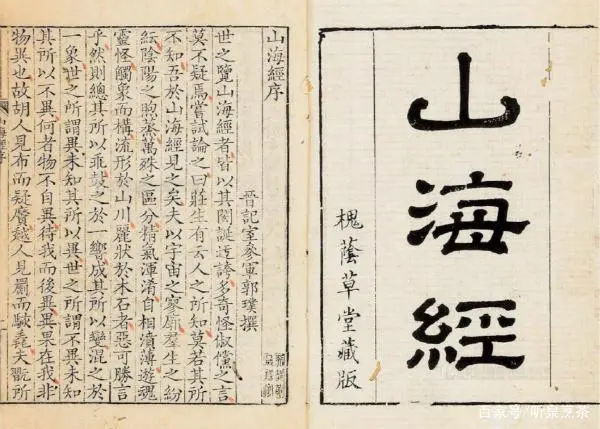 山海經
槐蔭草堂藏版
山海經序
晉記室參軍郭璞撰
世之覽山海經者皆以其閎誕迂誇多奇怪俶儻之言
莫不疑焉嘗試論之曰莊生有云人之所知莫若其所
不知吾於山海經見之矣夫以宇宙之寥廓羣生之紛
紜陰陽之煦蒸萬殊之區分精氣渾淆自相濆薄遊魂
靈怪觸象而構流形於山川麗狀於木石者惡可勝言
乎然則總其所以乖鼓之於一響成其所以變混之於
一象世之所謂異未知其所以異世之所謂不異未知
其所以不異何者物不自異待我而後異異果在我非
物異也故胡人見布而疑黂越人見罽而駭毳夫翫所
山海經序
百家号/听泉烹茶